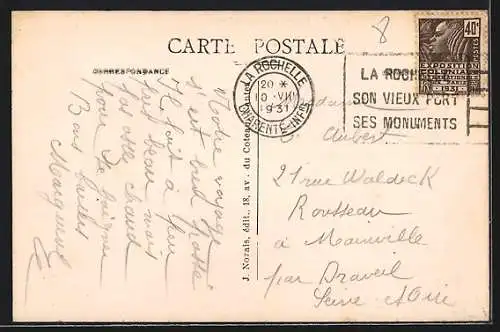 8
CARTE POSTALE
CORRESPONDANCE
LA ROCHELLE
20 *
10 - VIII
1931
CHARENTE-INFRE
40c
POSTES
EXPOSITION
COLONIALE
1931
LA ROCHE
SON VIEUX PORT
SES MONUMENTS
Notre voyage
s'est bien passé
Il fait à peu
près beau mais
pas assez chaud
pour se baigner
Bons baisers
Marguerite
J. Norais, édit., 18, av. du Coteau
Madame
Aubert
21 rue Waldeck
Rousseau
à Mainville
par Draveil
Seine et Oise